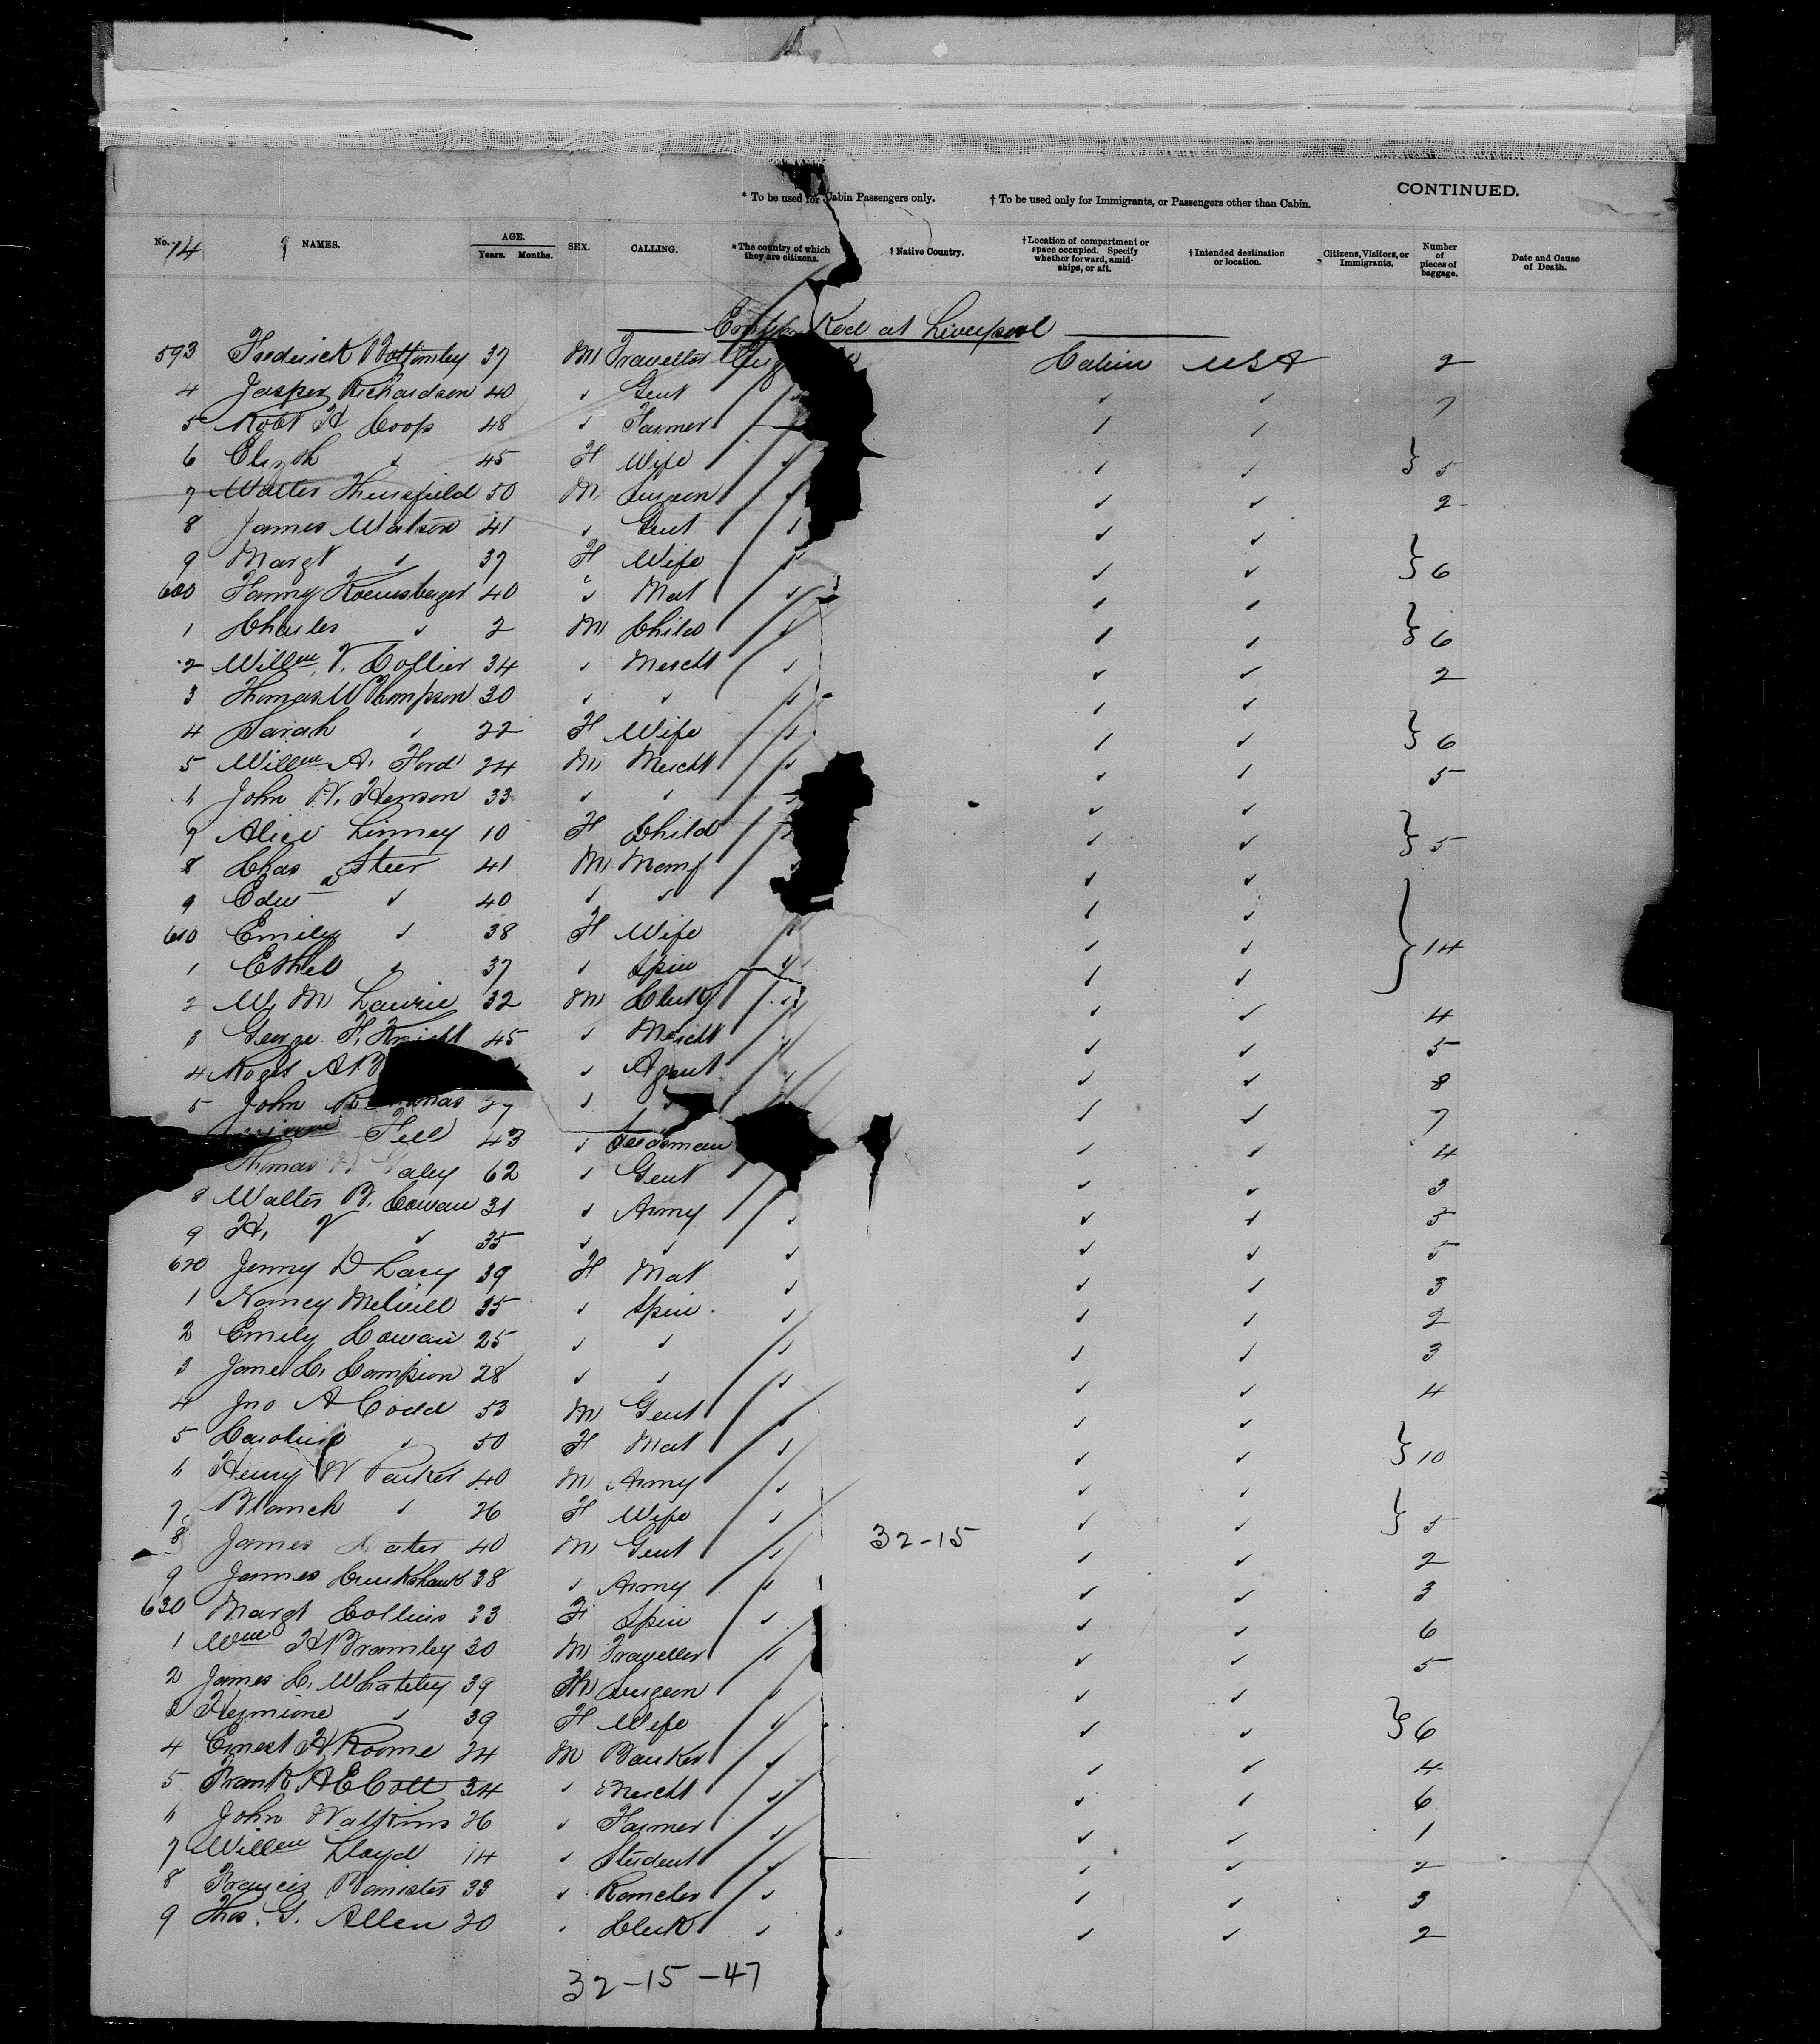 CONTINUED.
* To be used for Cabin Passengers only. † To be used only for Immigrants, or Passengers other than Cabin.
No. 14 NAMES. AGE. Years. Months. SEX. CALLING. * The country of which they are citizens. † Native Country. † Location of compartment or space occupied. Specify whether forward, amidships, or aft. † Intended destination or location. Citizens, Visitors, or Immigrants. Number of pieces of baggage. Date and Cause of Death.
at Liverpool
593 Frederick Bottomley 37 M Traveller Cabin USA 2
4 Jasper Richardson 40 " Gent " " 7
5 Robt H Coop 48 " Farmer " "
6 Elizth " 45 F Wife " " } 5
7 Walter Thursfield 50 M Surgeon " " 2
8 James Watson 41 " Gent " " "
9 Margt " 37 F Wife " " " } 6
600 Fanny 40 " Mat " " "
1 Charles " 2 M Child " " " } 6
2 Willm V. Collier 34 " Mercht " " " 2
3 Thomas W Thompson 30 " " " " "
4 Sarah " 22 F Wife " " " } 6
5 Willm A. Ford 24 M Mercht " " " 5
6 John W. Henson 33 " " " "
7 Alice Linney 10 F Child " " } 5
8 Chas Steer 41 M Manf " "
9 Edwd " 40 " " " "
610 Emily " 38 F Wife " " " } 14
1 Ethel " 37 " Spin " " "
2 W. M Laurie 32 M Clerk " " " 4
3 George F. Knight 45 " Mercht " " " 5
4 Roger A " Agent " " " 8
5 John 27 " " " " 7
Fell 43 " " " 4
Thomas 62 " Gent " " 3
8 Walter B. Cowan 31 " Army " " " 5
9 H. V " 35 " " " " " 5
620 Jenny D Lacy 39 F Mat " " " 3
1 Nancy Melvill 35 " Spin " " " 2
2 Emily Cowan 25 " " " " " 3
3 Jane C. Campion 28 " " " " " 4
4 Jno A Codd 53 M Gent " " "
5 Caroline " 50 F Mat " " " } 10
6 Henry W Parker 40 M Army " " "
7 Blanch " 26 F Wife " " " } 5
8 James 40 M Gent " 32-15 " " 2
9 James Cruikshank 38 " Army " " " 3
630 Margt Collins 33 F Spin " " " 6
1 Wm H Bramley 30 M Traveller " " " 5
2 James C. Whateley 39 M Surgeon " " "
3 Hermione " 39 F Wife " " " } 6
4 Ernest H Roome 24 M Banker " " " 4
5 Frank A E Cott 34 " Mercht " " " 6
6 John Watkins 26 " Farmer " " " 1
7 Willm Lloyd 14 " Student " " " 2
8 Francis Banister 33 " Rancher " " " 3
9 Thos. G. Allen 20 " Clerk " " " 2
32-15-47